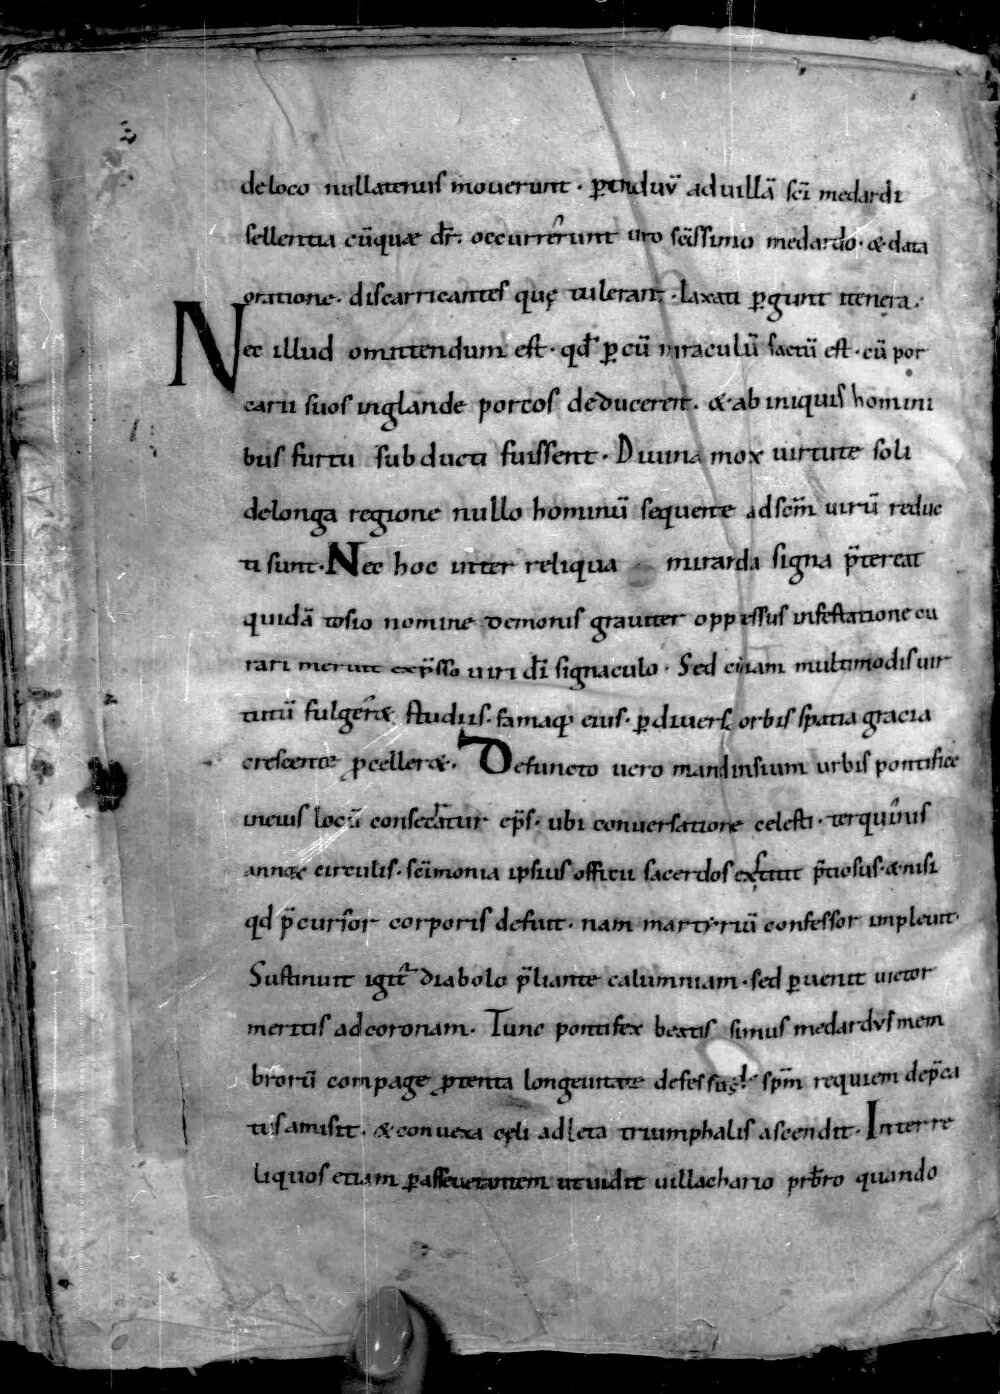 deloco nullatenus mouerunt · ꝑtnduꝰ ad uillā sc̄i medardi
sellentia cūquae dr̄. occurrerunt uro sc̄issimo medardo · & data
oratione · discarricantes quę tulerant · laxati ꝑgunt itenera ·
Nec illud omittendum est · qđ ꝑ eū miraculū factū est · cū por
carii suos inglande porcos deducerent · & ab iniquis homini
bus furtu subducti fuissent · Diuina mox uirtute soli
delonga regione nullo hominū sequente adscm̄ uirū reduc
ti sunt · Nec hoc inter reliqua miranda signa p̄tereat
quidā tosio nomine demonis grauiter oppressus infestatione cu
rari meruit exp̄sso uiri dī signaculo · Sed etiam multimodis uir
tutū fulger& studiis · famaq; eius · ꝑ diuersa orbis spatia gracia
crescente p̱celler& · Defuncto uero mandinsium urbis pontifice
ineius locū consecratur ep̄s · ubi conuersatione celesti · terquinis
annae circulis · sc̄imonia ipsius officii sacerdos extitit p̄tiosus · & nisi
qđ p̄cursor corporis defuit · nam martyriū confessor impleuit ·
Sustinuit igit̄ diabolo p̄liante calumniam · sed ꝑuenit uictor
meritis adcoronam · Tunc pontifex beatis simus medardus mem
brorū compage p̱tenta longeuitate defessus spm̄ requiem dep̄ca
tus amisit · & conuexa cęli adleta triumphalis ascendit · Inter re
liquos etiam ꝑasseuerantem ut uidit uillachario prb̄ro quando